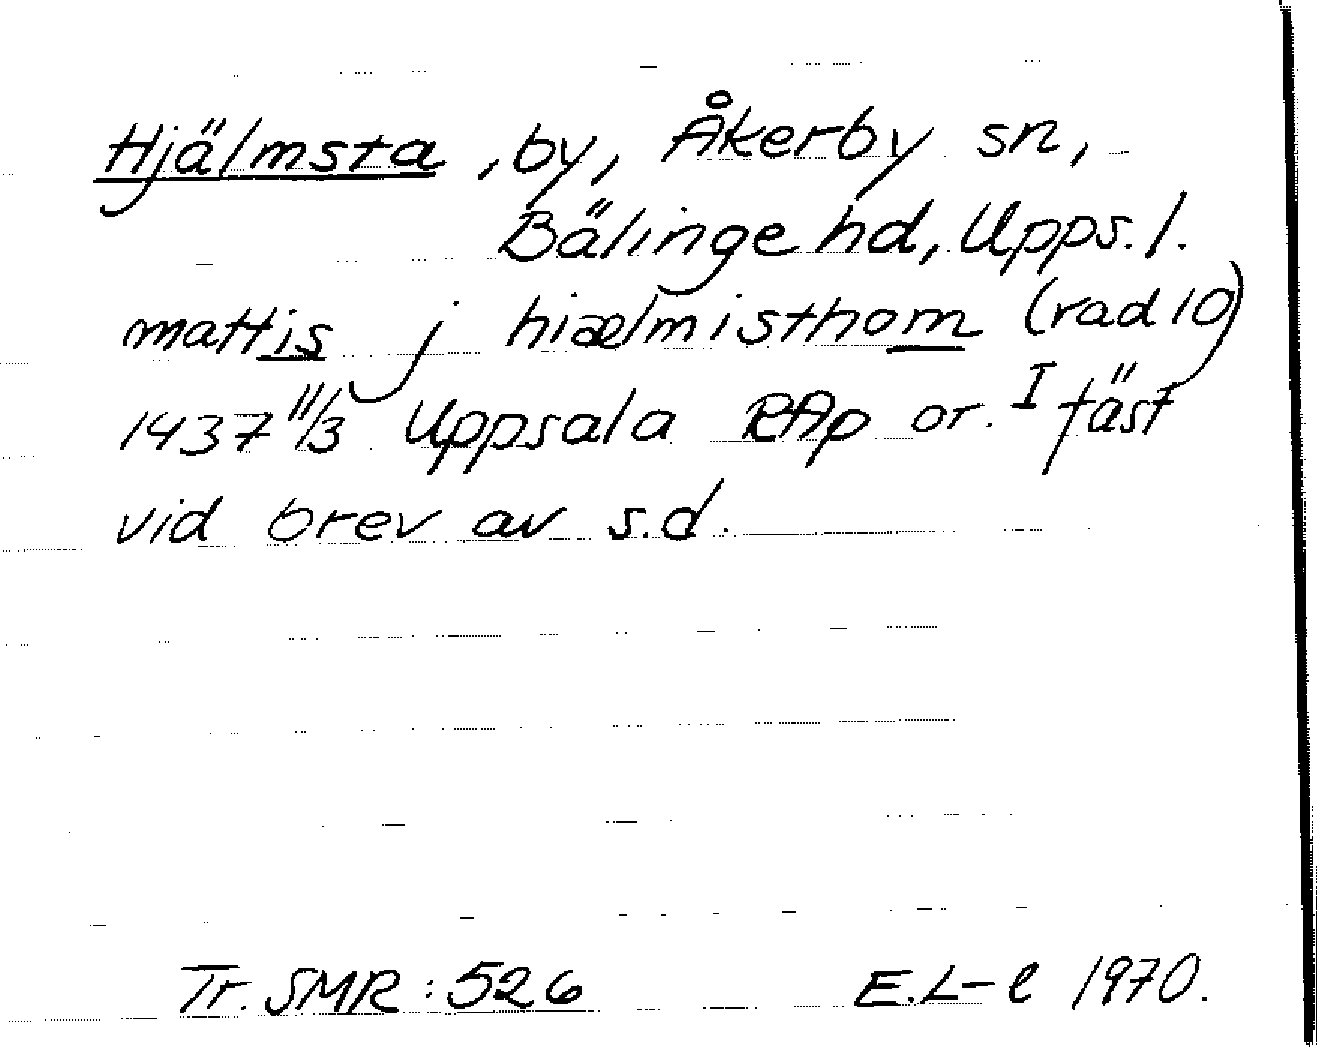 Hjälmsta, by, Åkerby sn,
Bälinge hd, Upps. l.
mattis j hiælmisthom (rad 10)
1437 11/3 Uppsala RAp or. I fäst
vid brev av s.d.
Tr. SMR: 526 E.L-e 1970.